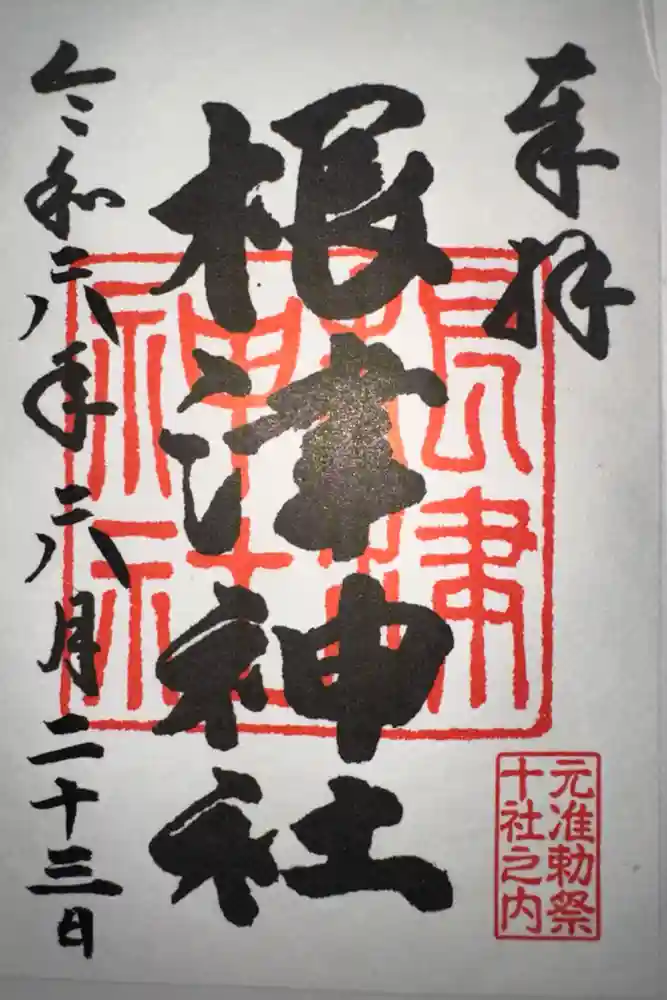 奉拝
根津神社
根津神社
元准勅祭
十社之内
令和六年六月二十三日